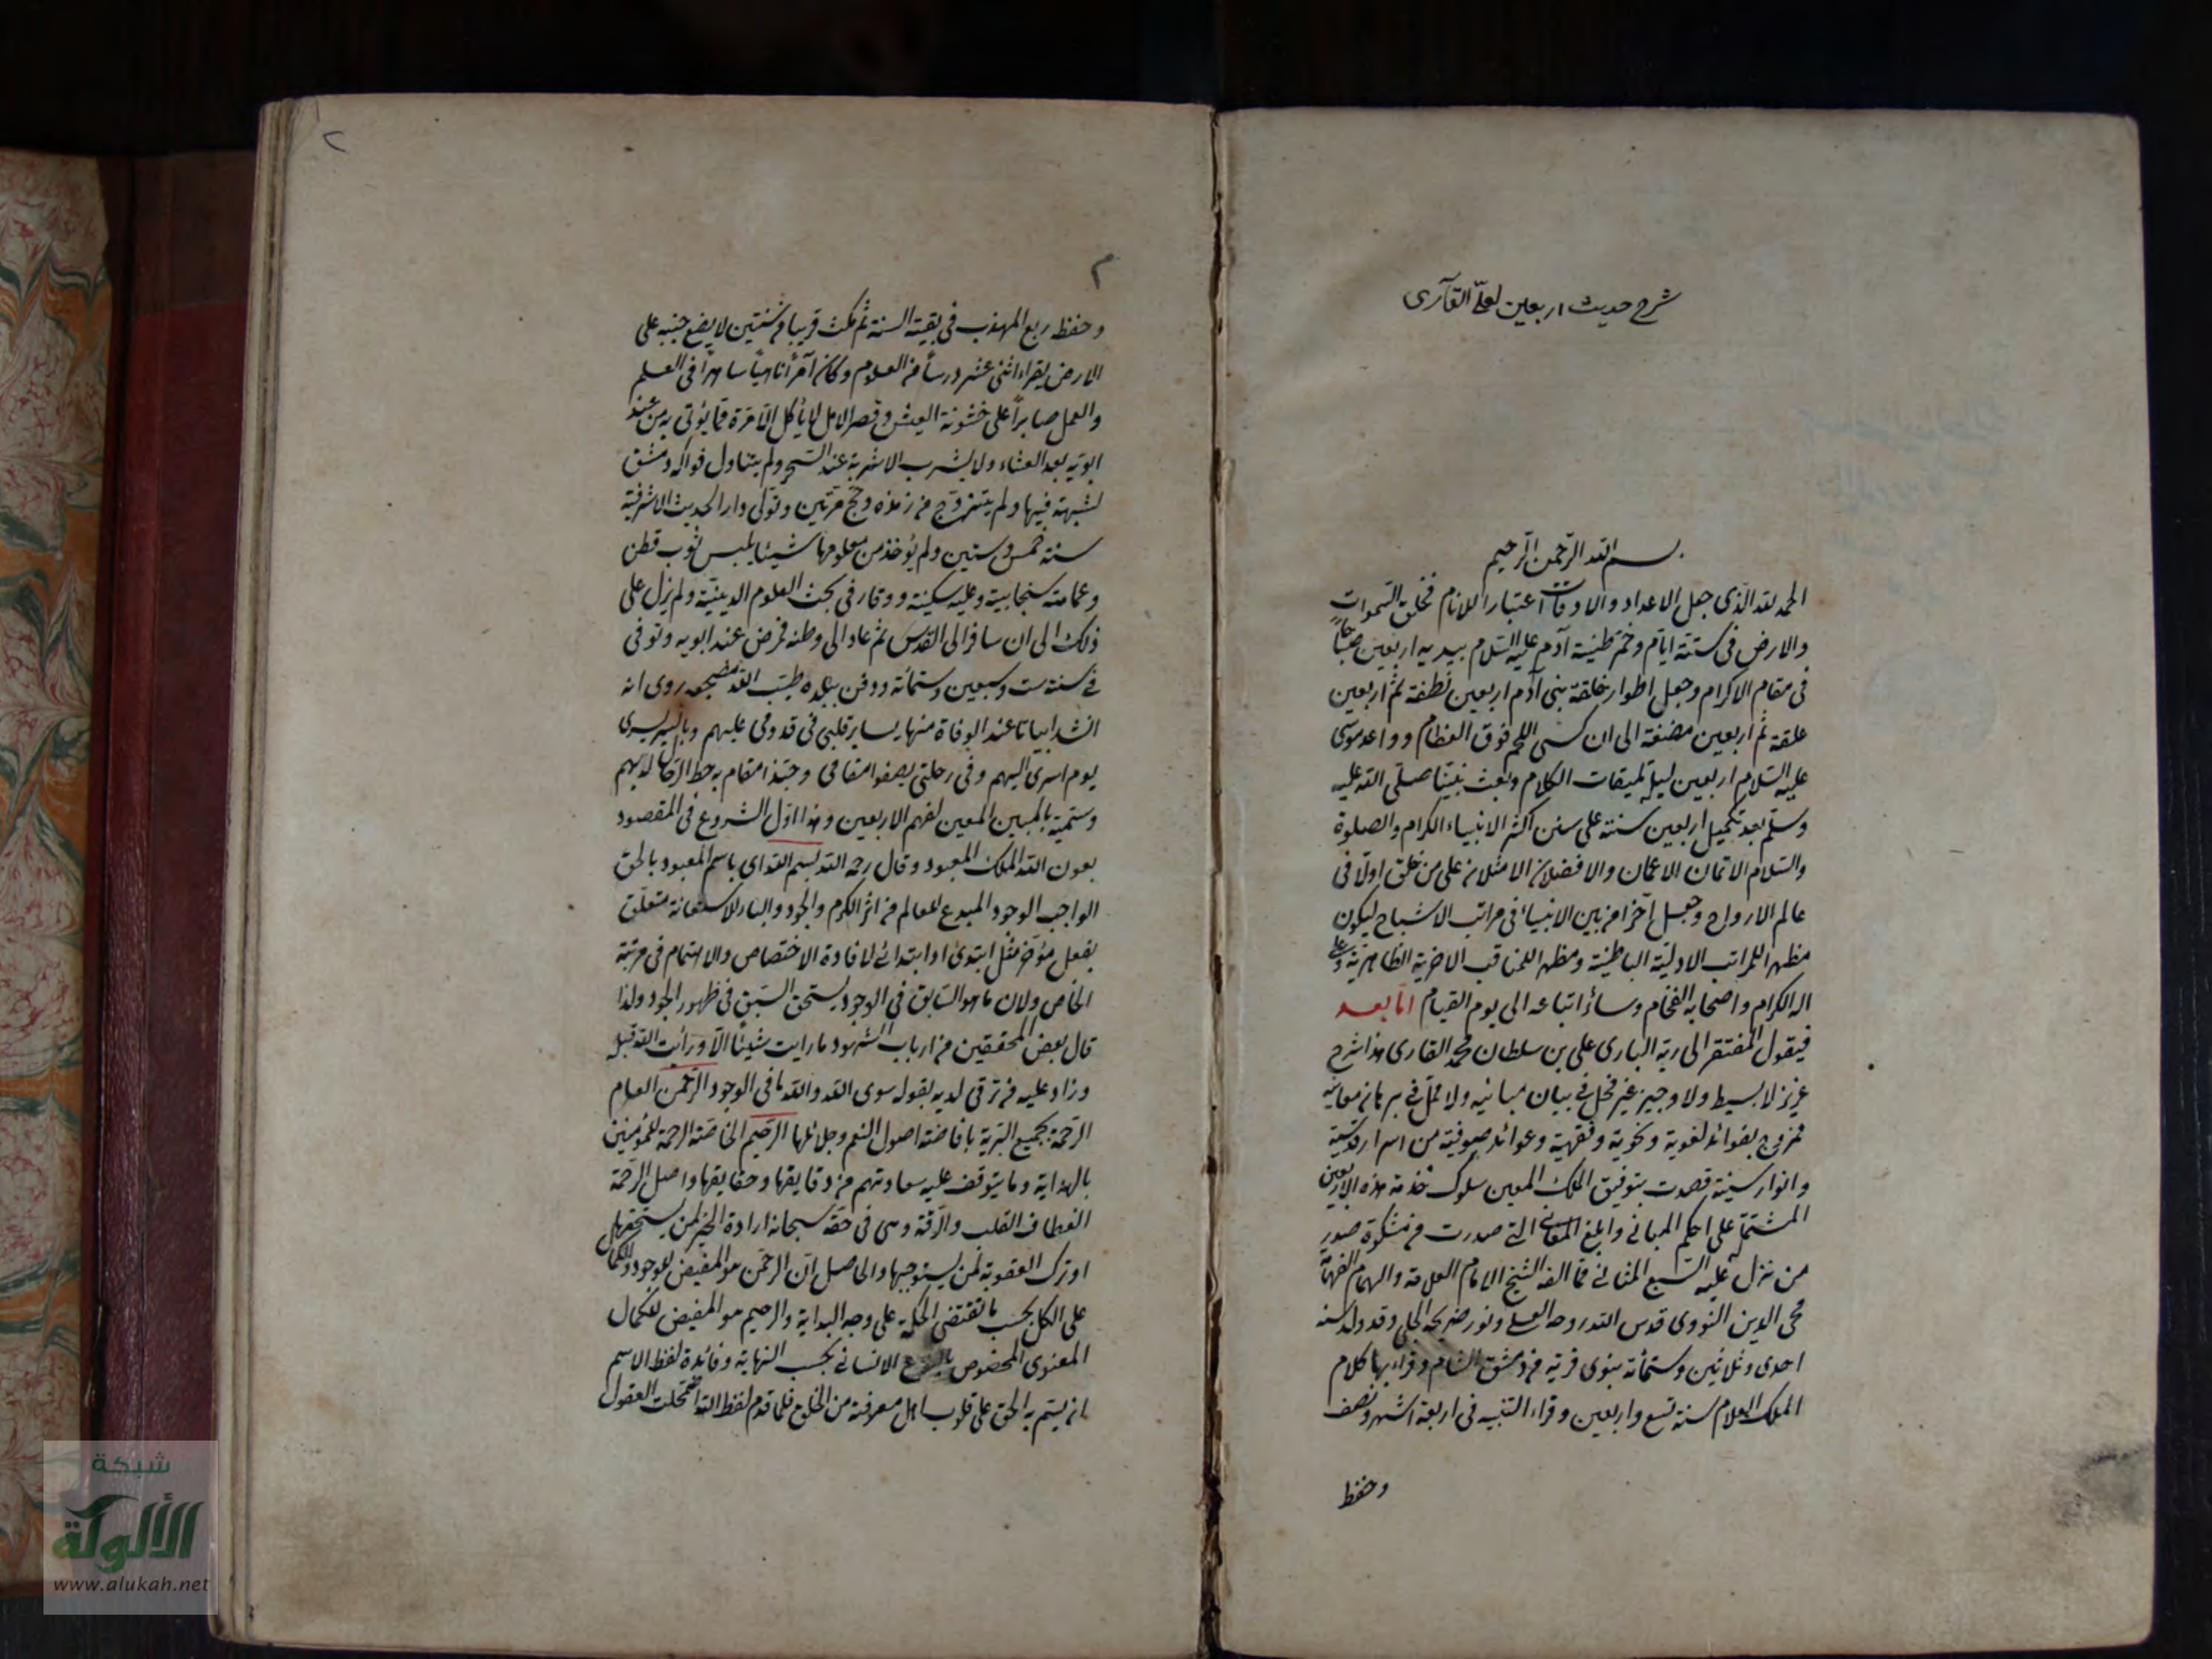 شرح حديث اربعين لعلى القآرى
بسم الله الرحمن الرحيم
الحمد لله الذى جعل الاعداد والاوقات اعتبارا للانام فخلق السموات
والارض فى ستة ايام وخمر طينة آدم عليه السلام بيديه اربعين صباحا
فى مقام الاكرام وجعل اطوار خلقة بنى آدم اربعين نطفة ثم اربعين
علقة ثم اربعين مضغة الى ان كسى اللحم فوق العظام وواعد موسى
عليه السلام اربعين ليلة لميقات الكلام وبعث نبينا صلى الله عليه
وسلم بعد تكميل اربعين سنة على سنن اكثر الانبياء الكرام والصلوة
والسلام الاتمان الاعمان والافضلان الامثلان على من خلق اولا فى
عالم الارواح وجعل آخرا من بين الانبياء فى مراتب الاشباح ليكون
مظهرا للمراتب الاولية الباطنية ومظهرا للمناقب الاخرية الظاهرية وعلى
اله الكرام واصحابه الفخام وسائر اتباعه الى يوم القيام اما بعد
فيقول المفتقر الى ربه البارى على بن سلطان محمد القارى هذا شرح
عزيز لا بسيط ولا وجيز غير مخل فى بيان مبانيه ولا ممل فى برهان معانيه
ممزوج بفوائد لغوية ونحوية وفقهية وعوائد صوفية من اسرار قدسية
وانوار سنية قصدت بتوفيق الملك المعين سلوك خدمة هذه الاربعين
المشتملة على احكم المبانى وابلغ المعانى التى صدرت من مشكوة صدر
من نزل عليه السبع المثانى مما الفه الشيخ الامام العلامة والهمام الفهامة
محى الدين النووى قدس الله روحه العلى ونور ضريحه الجلى وقد ولد سنة
احدى وثلاثين وستمائة بنوى قرية من دمشق الشام وقراء بها كلام
الملك العلام سنة تسع واربعين وقراء التنبيه فى اربعة اشهر ونصف
وحفظ
٢
٢
وحفظ ربع المهذب فى بقية السنة ثم مكث قريبا من سنتين لا يضع جنبه على
الارض يقراء اثنى عشر درسا من العلوم وكان آمرا ناهيا ساهرا فى العلم
والعمل صابرا على خشونة العيش وقصر الامل لا يأكل الا مرة مما يؤتى به من عند
ابويه بعد العشاء ولا يشرب الا شربة عند السحر ولم يتناول فواكه دمشق
لشبهة فيها ولم يتزوج من زهده وحج مرتين وتولى دار الحديث الاشرفية
سنة خمس وستين ولم يؤخذ من معلومها شيئا يلبس ثوب قطن
وعمامة سنجابية وعليه سكينة ووقار فى بحث العلوم الدينية ولم يزل على
ذلك الى ان سافر الى القدس ثم عاد الى وطنه فمرض عند ابويه وتوفى
فى سنة ست وسبعين وستمائة ودفن ببلده طيب الله مضجعه روى انه
انشد ابياتا عند الوفاة منها بساير قلبى فى قدومى عليهم وبالسير يسرى
يوم اسرى اليهم وفى رحلتى يصفوا مقامى وحبذا مقام به حط الرحال لديهم
وسميته بالمبين المعين لفهم الاربعين وهذا اول الشروع فى المقصود
بعون الله الملك المعبود وقال رحمه الله بسم الله اى باسم المعبود بالحق
الواجب الوجود المبدع للعالم من اثر الكرم والجود والباء للاستعانة متعلق
بفعل مؤخر مثل ابتدئ او ابتدائى لافادة الاختصاص والاهتمام فى مرتبة
الخاص ولان ما هو السابق فى الوجود يستحق السبق فى ظهور الجود ولذا
قال بعض المحققين من ارباب الشهود ما رايت شيئا الا ورأيت الله قبله
وزاد عليه من ترقى لديه بقوله سوى الله والله ما فى الوجود الرحمن العام
الرحمة بجميع البرية بافاضة اصول النعم وجلائلها الرحيم الخاصة الرحمة للمؤمنين
بالهداية وما يتوقف عليه سعادتهم من دقايقها وحقايقها واصل الرحمة
انعطاف القلب والرقة وهى فى حقه سبحانه ارادة الخير لمن يستحقها
او ترك العقوبة لمن يستوجبها والحاصل ان الرحمن هو المفيض للوجود والكمال
على الكل بحسب ما تقتضى الحكمة على وجه البداية والرحيم هو المفيض للكمال
المعنوى المخصوص بالنوع الانسانى بحسب النهاية وفائدة لفظ الاسم
انه يستم به الحق على قلوب اهل معرفته من الخلق فلما قدم لفظ الله اضمحلت العقول
شبكة
الألوكة
www.alukah.net